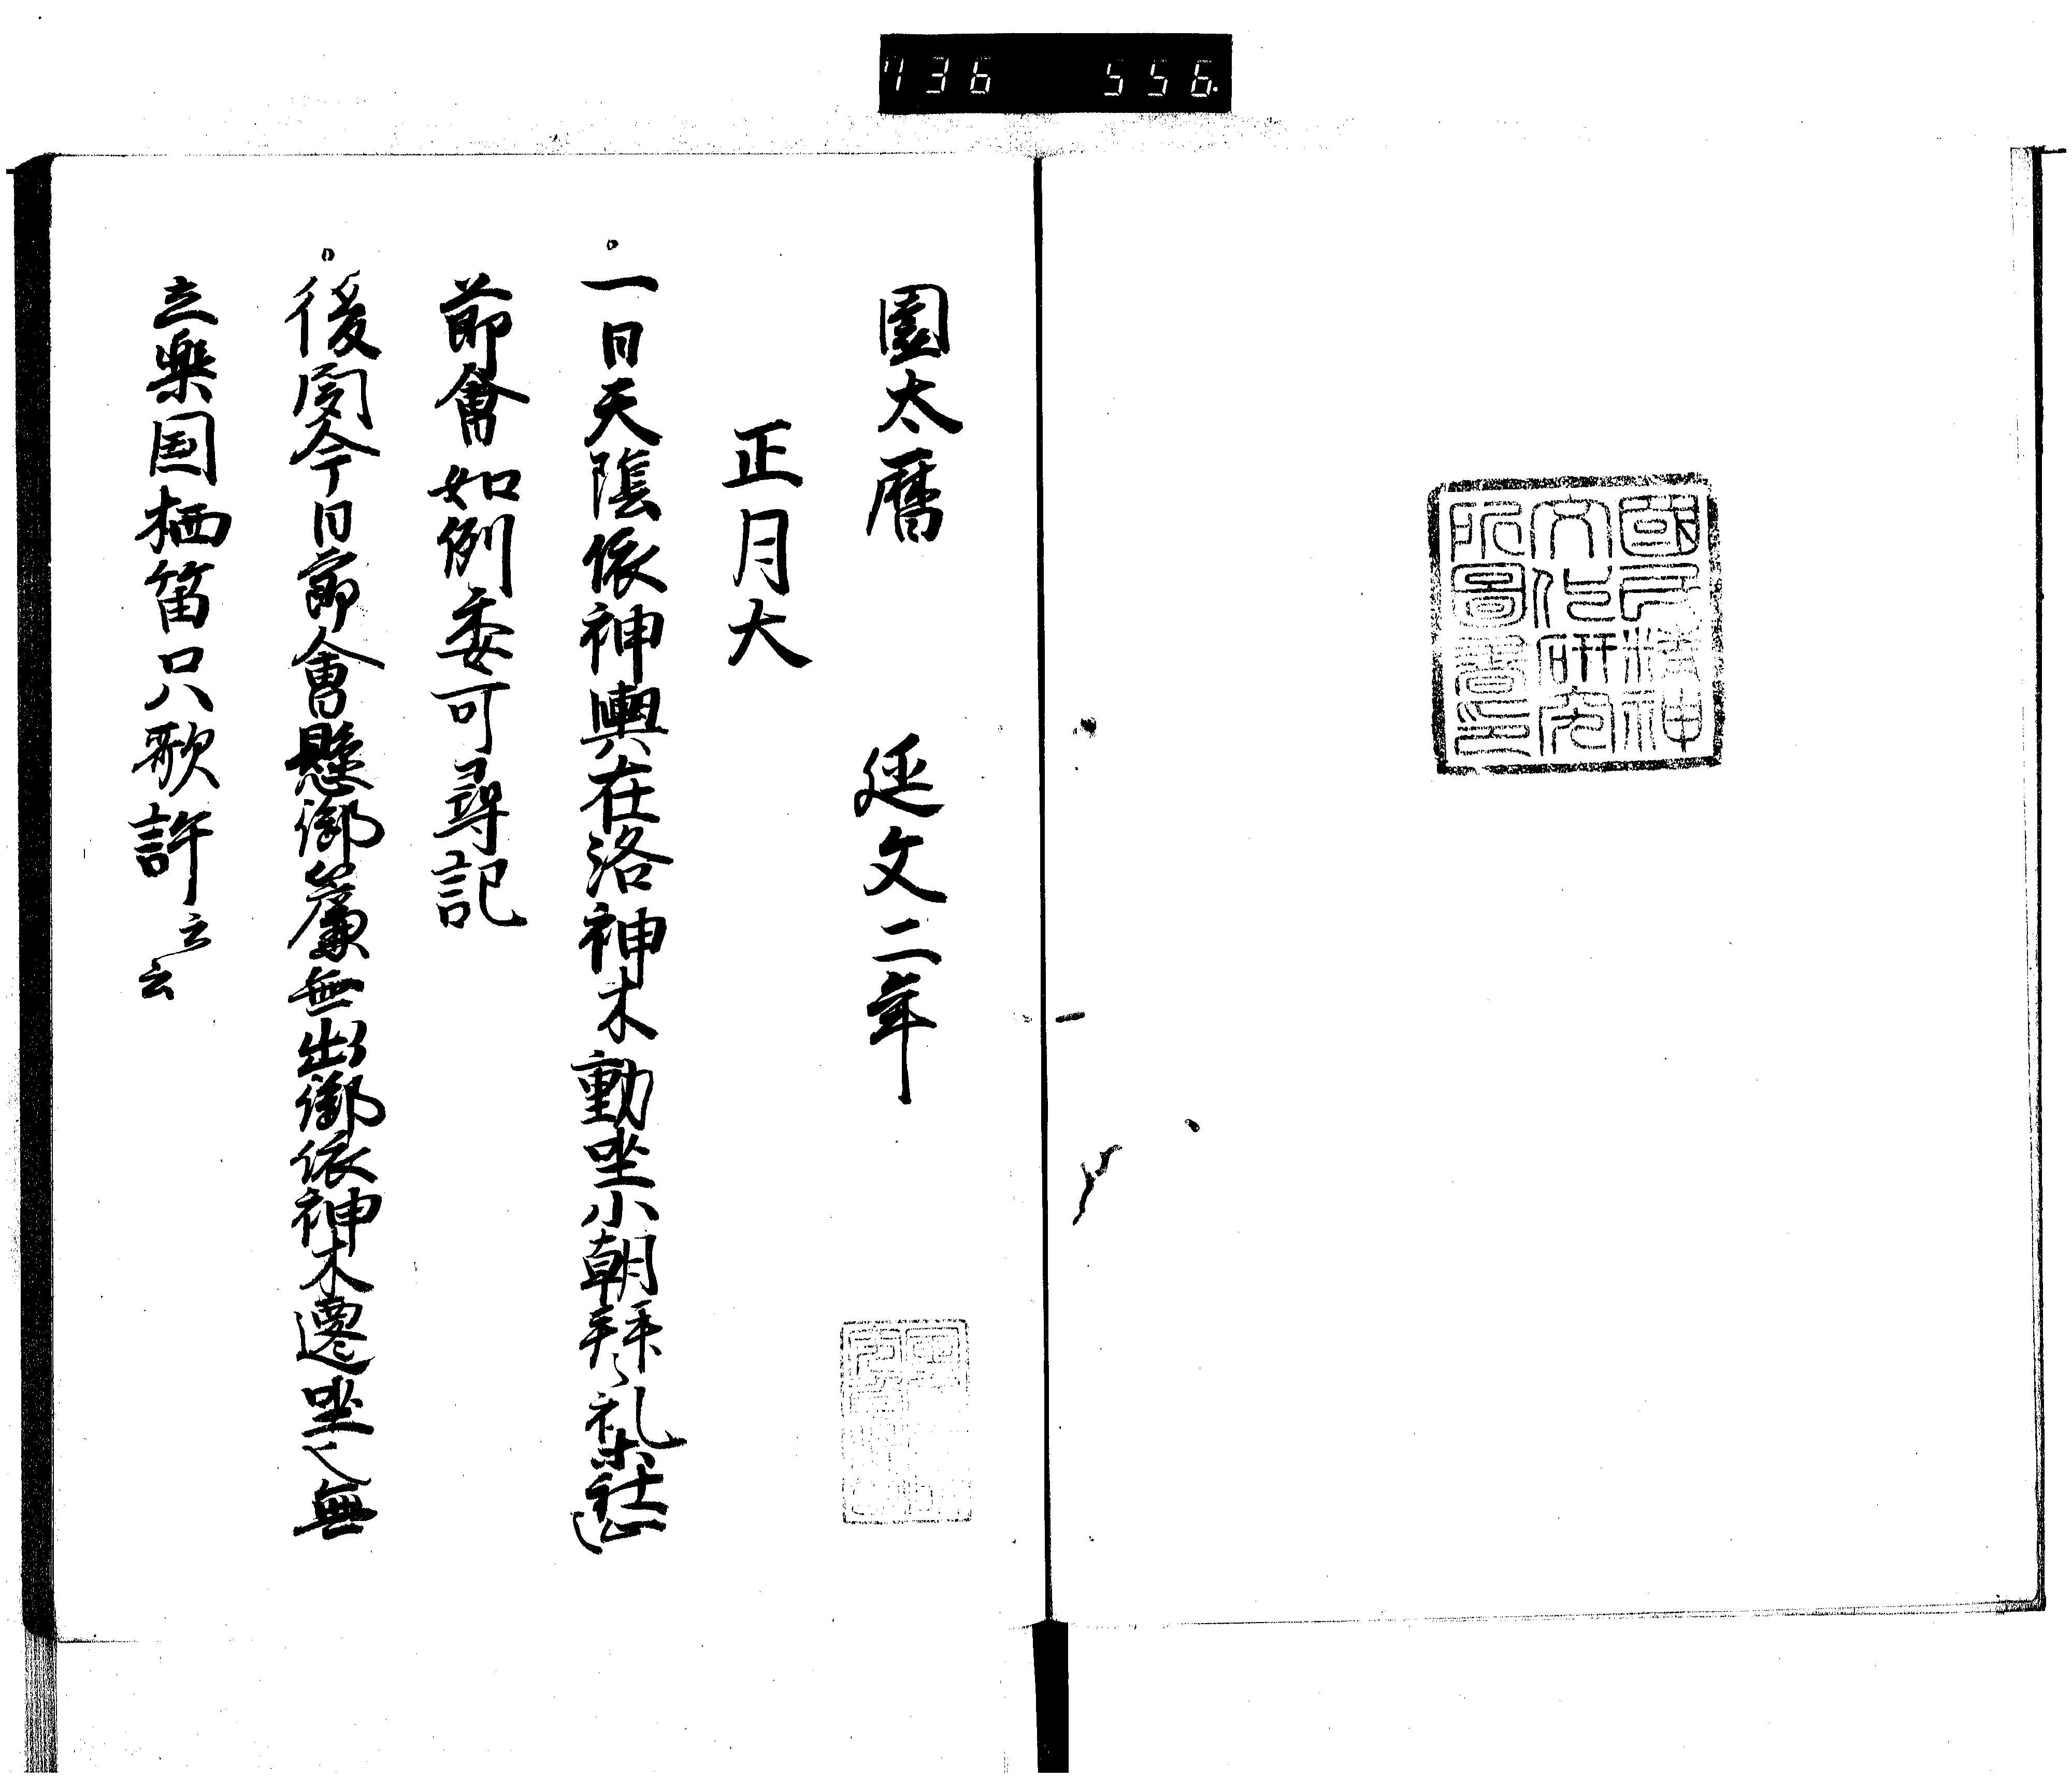 736 556
國民精神
文化研究
所圖書印
園太暦 延文二年
正月大
一日天陰依神輿在洛神木動坐小朝拝々礼禁社止
節會如例委可尋記
後聞今日節會懸御簾無出御依神木遷坐也無
立楽国栖笛只歌許云云